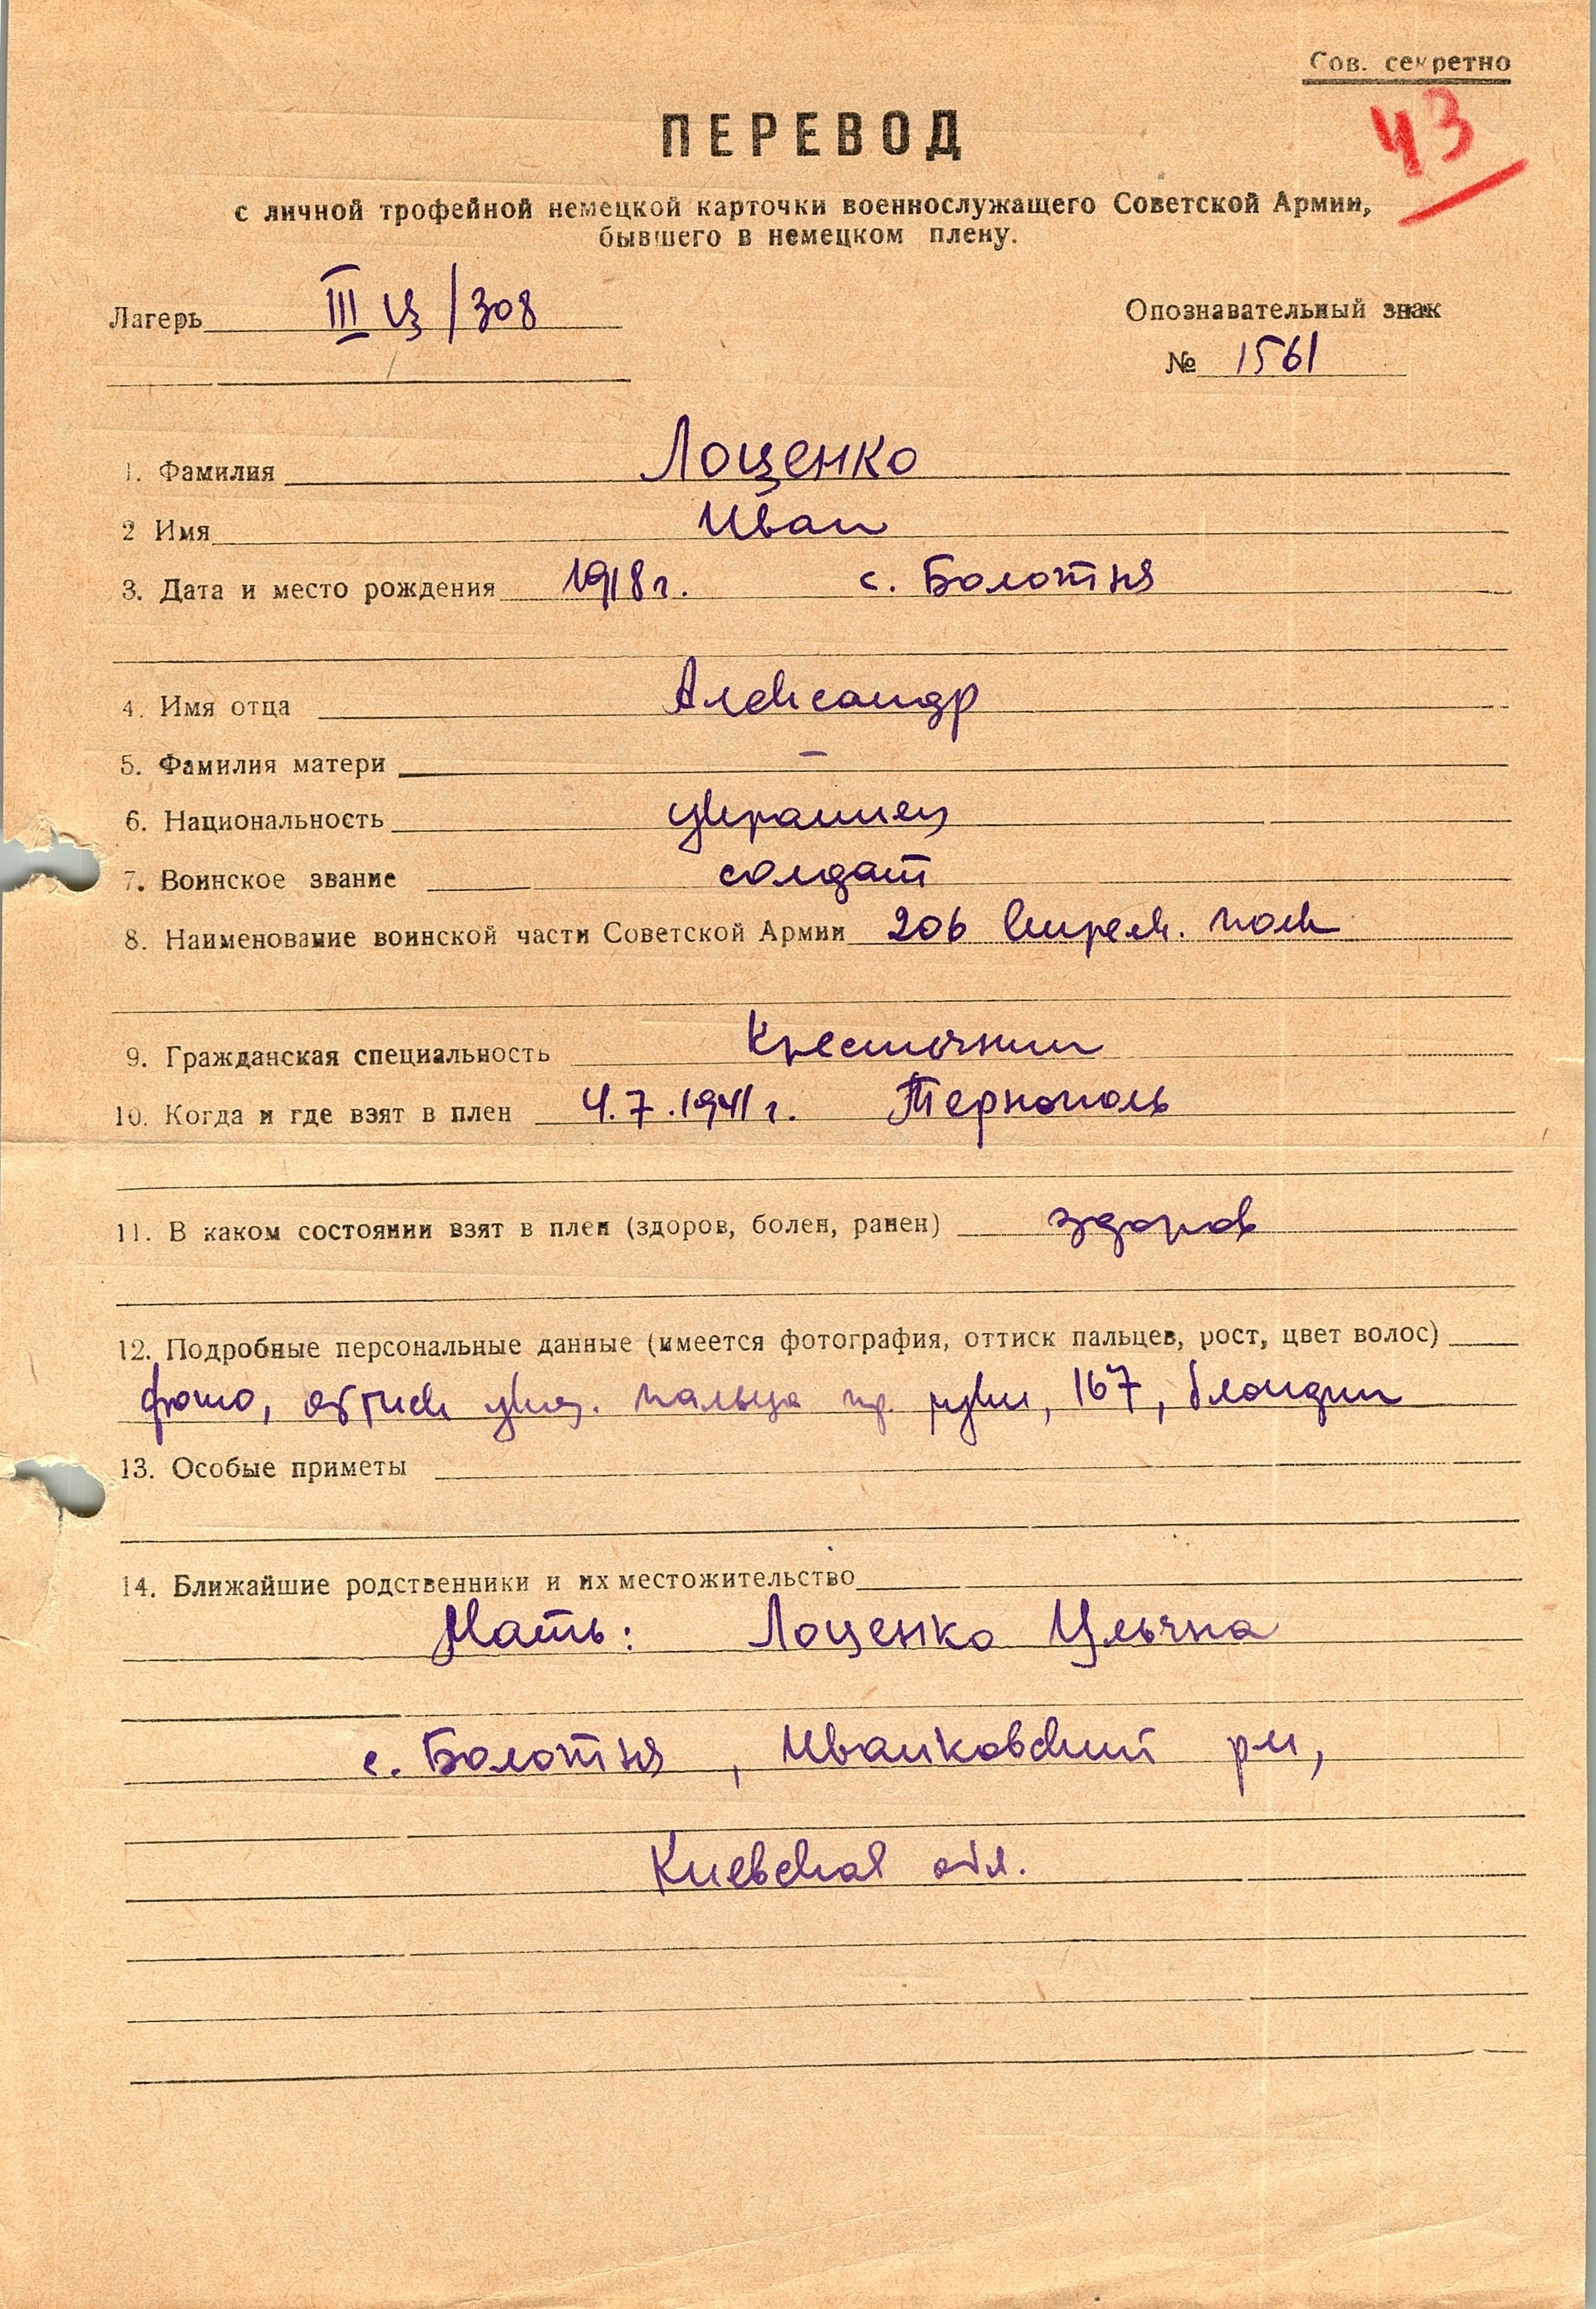 Сов. секретно
43
ПЕРЕВОД
с личной трофейной немецкой карточки военнослужащего Советской Армии,
бывшего в немецком плену.
Лагерь III Ц/308
Опознавательный знак
№ 1561
1. Фамилия Лоценко
2 Имя Иван
3. Дата и место рождения 1918 г. с. Болотня
4. Имя отца Александр
5. Фамилия матери —
6. Национальность украинец
7. Воинское звание солдат
8. Наименование воинской части Советской Армии 206 стрелк. полк
9. Гражданская специальность Крестьянин
10. Когда и где взят в плен 4.7.1941 г. Тернополь
11. В каком состоянии взят в плен (здоров, болен, ранен) здоров
12. Подробные персональные данные (имеется фотография, оттиск пальцев, рост, цвет волос)
фото, оттиск указ. пальца пр. руки, 167, блондин
13. Особые приметы
14. Ближайшие родственники и их местожительство
Мать: Лоценко
с. Болотня, Иванковский рн,
Киевская обл.